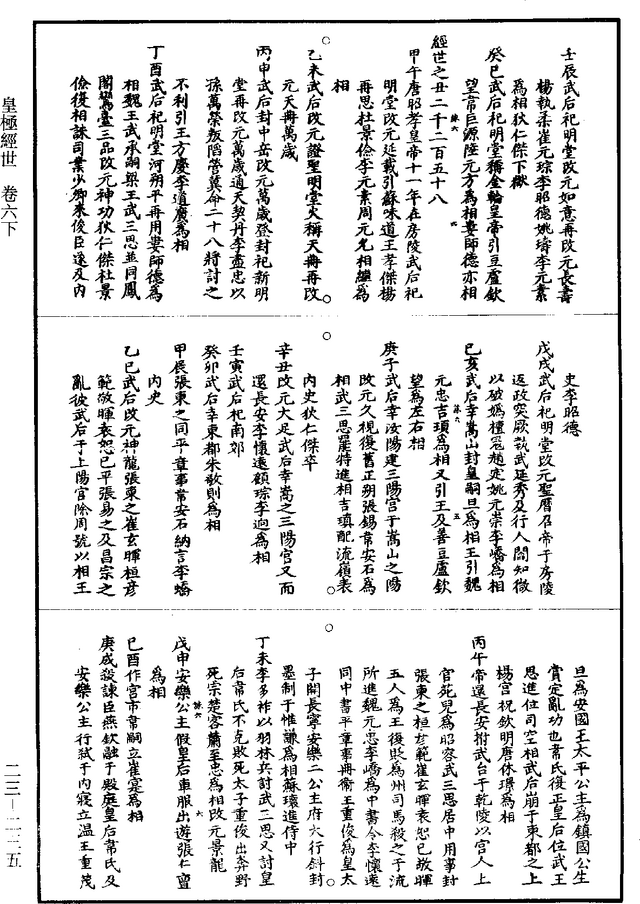 皇極經世　卷六下
二三—二二五
壬辰武后祀明堂改元如意再改元長壽
楊執柔崔元琮李昭德姚璹李元素
爲相狄仁傑下獄
癸巳武后祀明堂稱金輪皇帝引豆盧欽
望韋巨源陸元方爲相婁師德亦相
經世之丑二千二百五十八
甲午唐昭孝皇帝十一年在房陵武后祀
明堂改元延載引蘇味道王孝傑楊
再思杜景儉李元素周元允相繼爲
相
乙未武后改元證聖明堂火稱天冊再改
元天冊萬歲
丙申武后封中岳改元萬歲登封祀新明
堂再改元萬歲通天契丹李盡忠以
孫萬榮叛陷營冀命二十八將討之
不利引王方慶李道廣爲相
丁酉武后祀明堂河朔平再用婁師德爲
相魏王武承嗣梁王武三思並同鳳
閣鸞臺三品改元神功狄仁傑杜景
儉復相誅司業少卿來俊臣遂及內
史李昭德
戊戌武后祀明堂改元聖曆召帝于房陵
返政突厥執武延秀及行人閻知微
以破媯檀冦趙定姚元崇李嶠爲相
己亥武后幸嵩山封皇嗣旦爲相王引魏
元忠吉頊爲相又引王及善豆盧欽
望爲左右相
庚子武后幸汝陽建三陽宮于嵩山之陽
改元久視復舊正朔張錫韋安石爲
相武三思罷特進相吉頊配流嶺表
內史狄仁傑卒
辛丑改元大足武后幸嵩之三陽宮又而
還長安李懷遠顧琮李迥爲相
壬寅武后祀南郊
癸卯武后幸東都朱敬則爲相
甲辰張柬之同平章事韋安石納言李嶠
內史
乙巳武后改元神龍張柬之崔玄暉桓彦
範敬暉袁恕己平張易之及昌宗之
亂徙武后于上陽宮除周號以相王
旦爲安國王太平公主爲鎮國公主
賞定亂功也韋氏復正皇后位武王
思進位司空相武后崩于東都之上
楊宮祝欽明唐休璟爲相
丙午帝還長安祔武台于乾陵以宮人上
官苑兒爲昭容武三思居中用事封
張柬之桓彦範崔玄暉袁恕己敬暉
五人爲王復貶爲州司馬殺之于流
所進魏元忠李嶠爲中書令李懷遠
同中書平章事冊衞王重俊爲皇太
子開長寧安樂二公主府大行斜封
墨制于惟謙爲相蘇瓌進侍中
丁未李多祚以羽林兵討武三思又討皇
后韋氏不克敗死太子重俊出奔野
死宗楚客蕭至忠爲相改元景龍
戊申安樂公主假皇后車服出遊張仁亶
爲相
己酉作宮市韋嗣立崔寔爲相
庚戌殺諫臣燕欽融于殿庭皇后韋氏及
安樂公主行弒于內寢立温王重茂